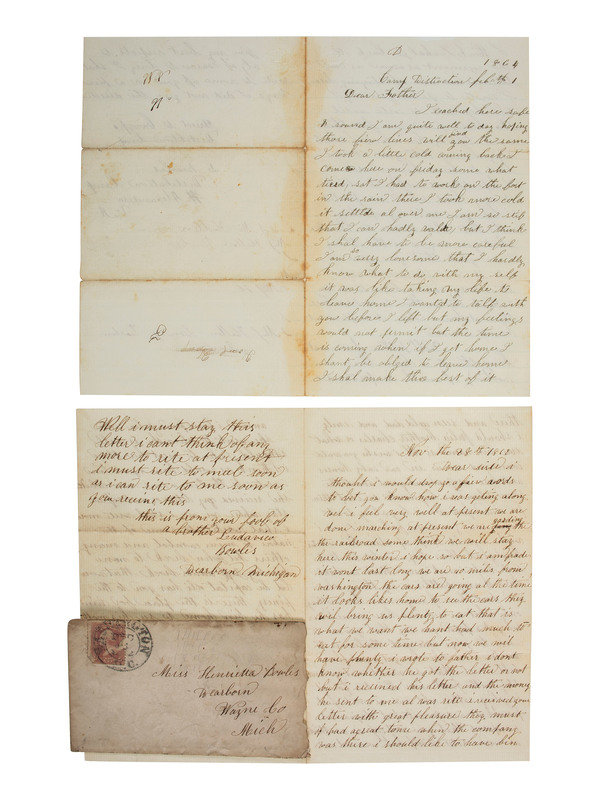 1864
Camp Distinction Feb 1
Dear Father
I reached here safe
& sound I am quite well to day hoping
those few lines will find you the same
I took a little cold coming back I
come here on friday some what
tired, sat I had to work on the fort
in the rain there I took more cold
it settld al over me I am so stif
that I can hadly walk but I think
I shal have to be more careful
I am so very lonesome that I hardly
know what to do with my self
it was like taking my life to
leave home I wanted to talk with
you before I left but my feelings
would not permit but the time
is coming when if I get home I
shant be obliged to leave home
I shal make the best of it
Well i must stop this
letter i cant think of any
more to rite at present
i must rite to soon
as i can rite to me soon as
you receive this
this is from your
a brother Ludavico
Bowles
Dearborn Michigan
Nov the 28th
Dear
i thought i would drop a few words
to let you know how i was geting along
wel i feel very well at present we are
done marching at present we are garding
the railroad some think we will stay
here this winter i hope so but i am afraid
it wont last long we are 40 miles from
washington the cars are going al the time
it looks likes home to see the cars they
will bring us plenty to eat that is
what we want we hant had much to
eat for some time but now we wil
have plenty i wrote to father i dont
know whether he got the letter or not
but i received his letter and the money
he sent to me al was rite i received your
letter with great pleasure they must
of had a great time when the company
was there i should like to have bin
WASHINGTON
Miss Henrietta Bowles
Dearborn
Wayne Co
Mich